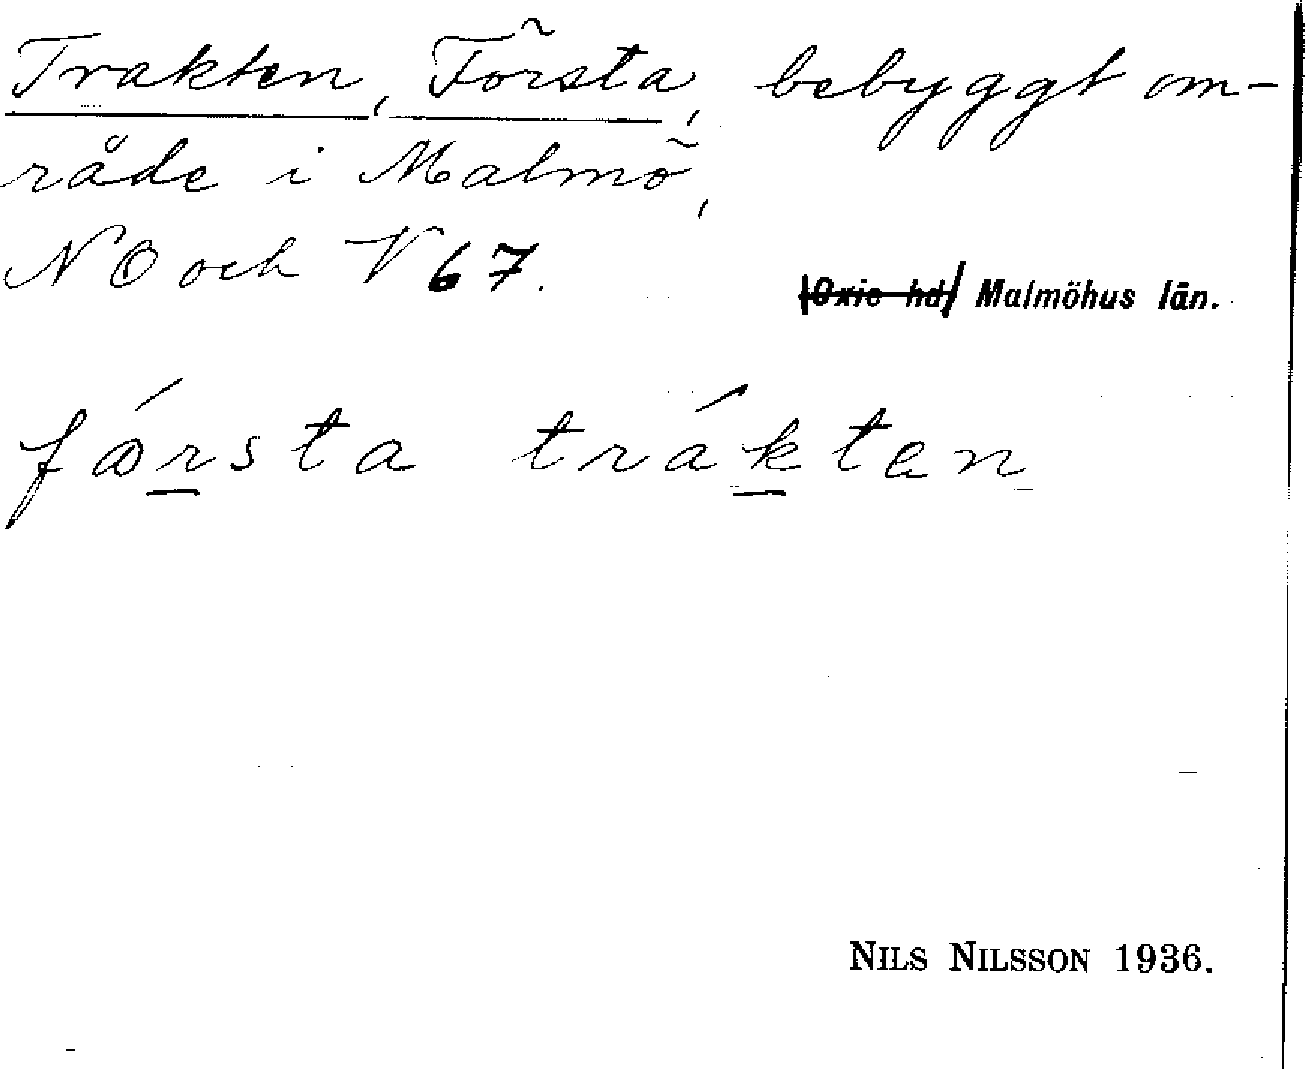 Trakten, Första, bebyggt om-
råde i Malmö,
NO och V 67.
(Oxie hd) Malmöhus län.
fǿrsta trákten
NILS NILSSON 1936.